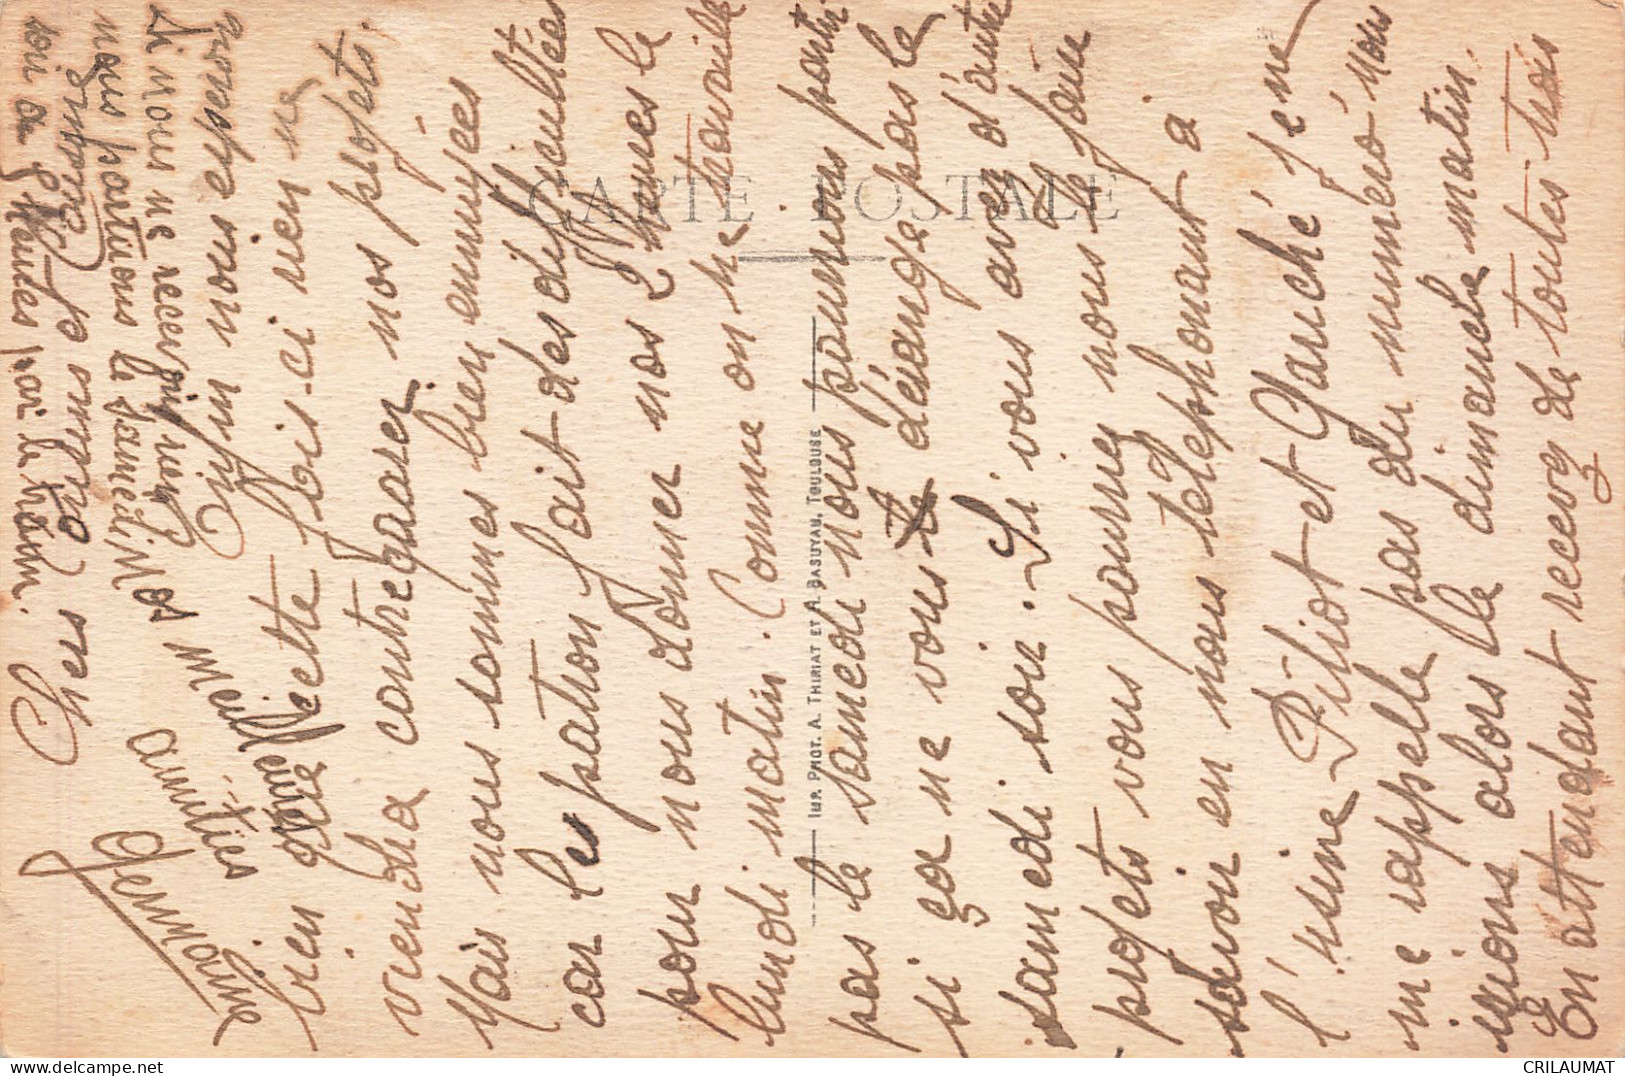 Chers Cousin et Cousine
Enfin nous esperons
bien que cette fois-ci rien ne
viendra contrecarrer nos projets.
Mais nous sommes bien ennuyées
car le patron fait des difficultées
pour nous donner nos 2 heures le
lundi matin. Comme on ne travaille
pas le samedi nous pourrions partir
si ça ne vous dérange pas le
samedi soir. Si vous avez d'autre
projets vous pourrez nous le faire
savoir en nous téléphonant à
l'usine Piliot et Gauché je ne
me rappelle pas du numéro nous
irions alors le dimanche matin.
En attendant recevez de toutes trois
nos amitiés
Germaine
Si nous ne recevons rien
nous partirons le samedi
soir à 9 heures par le train.
CARTE POSTALE
IMP. PHOT. A. THIRIAT ET A. BASUYAU, TOULOUSE
CRILAUMAT